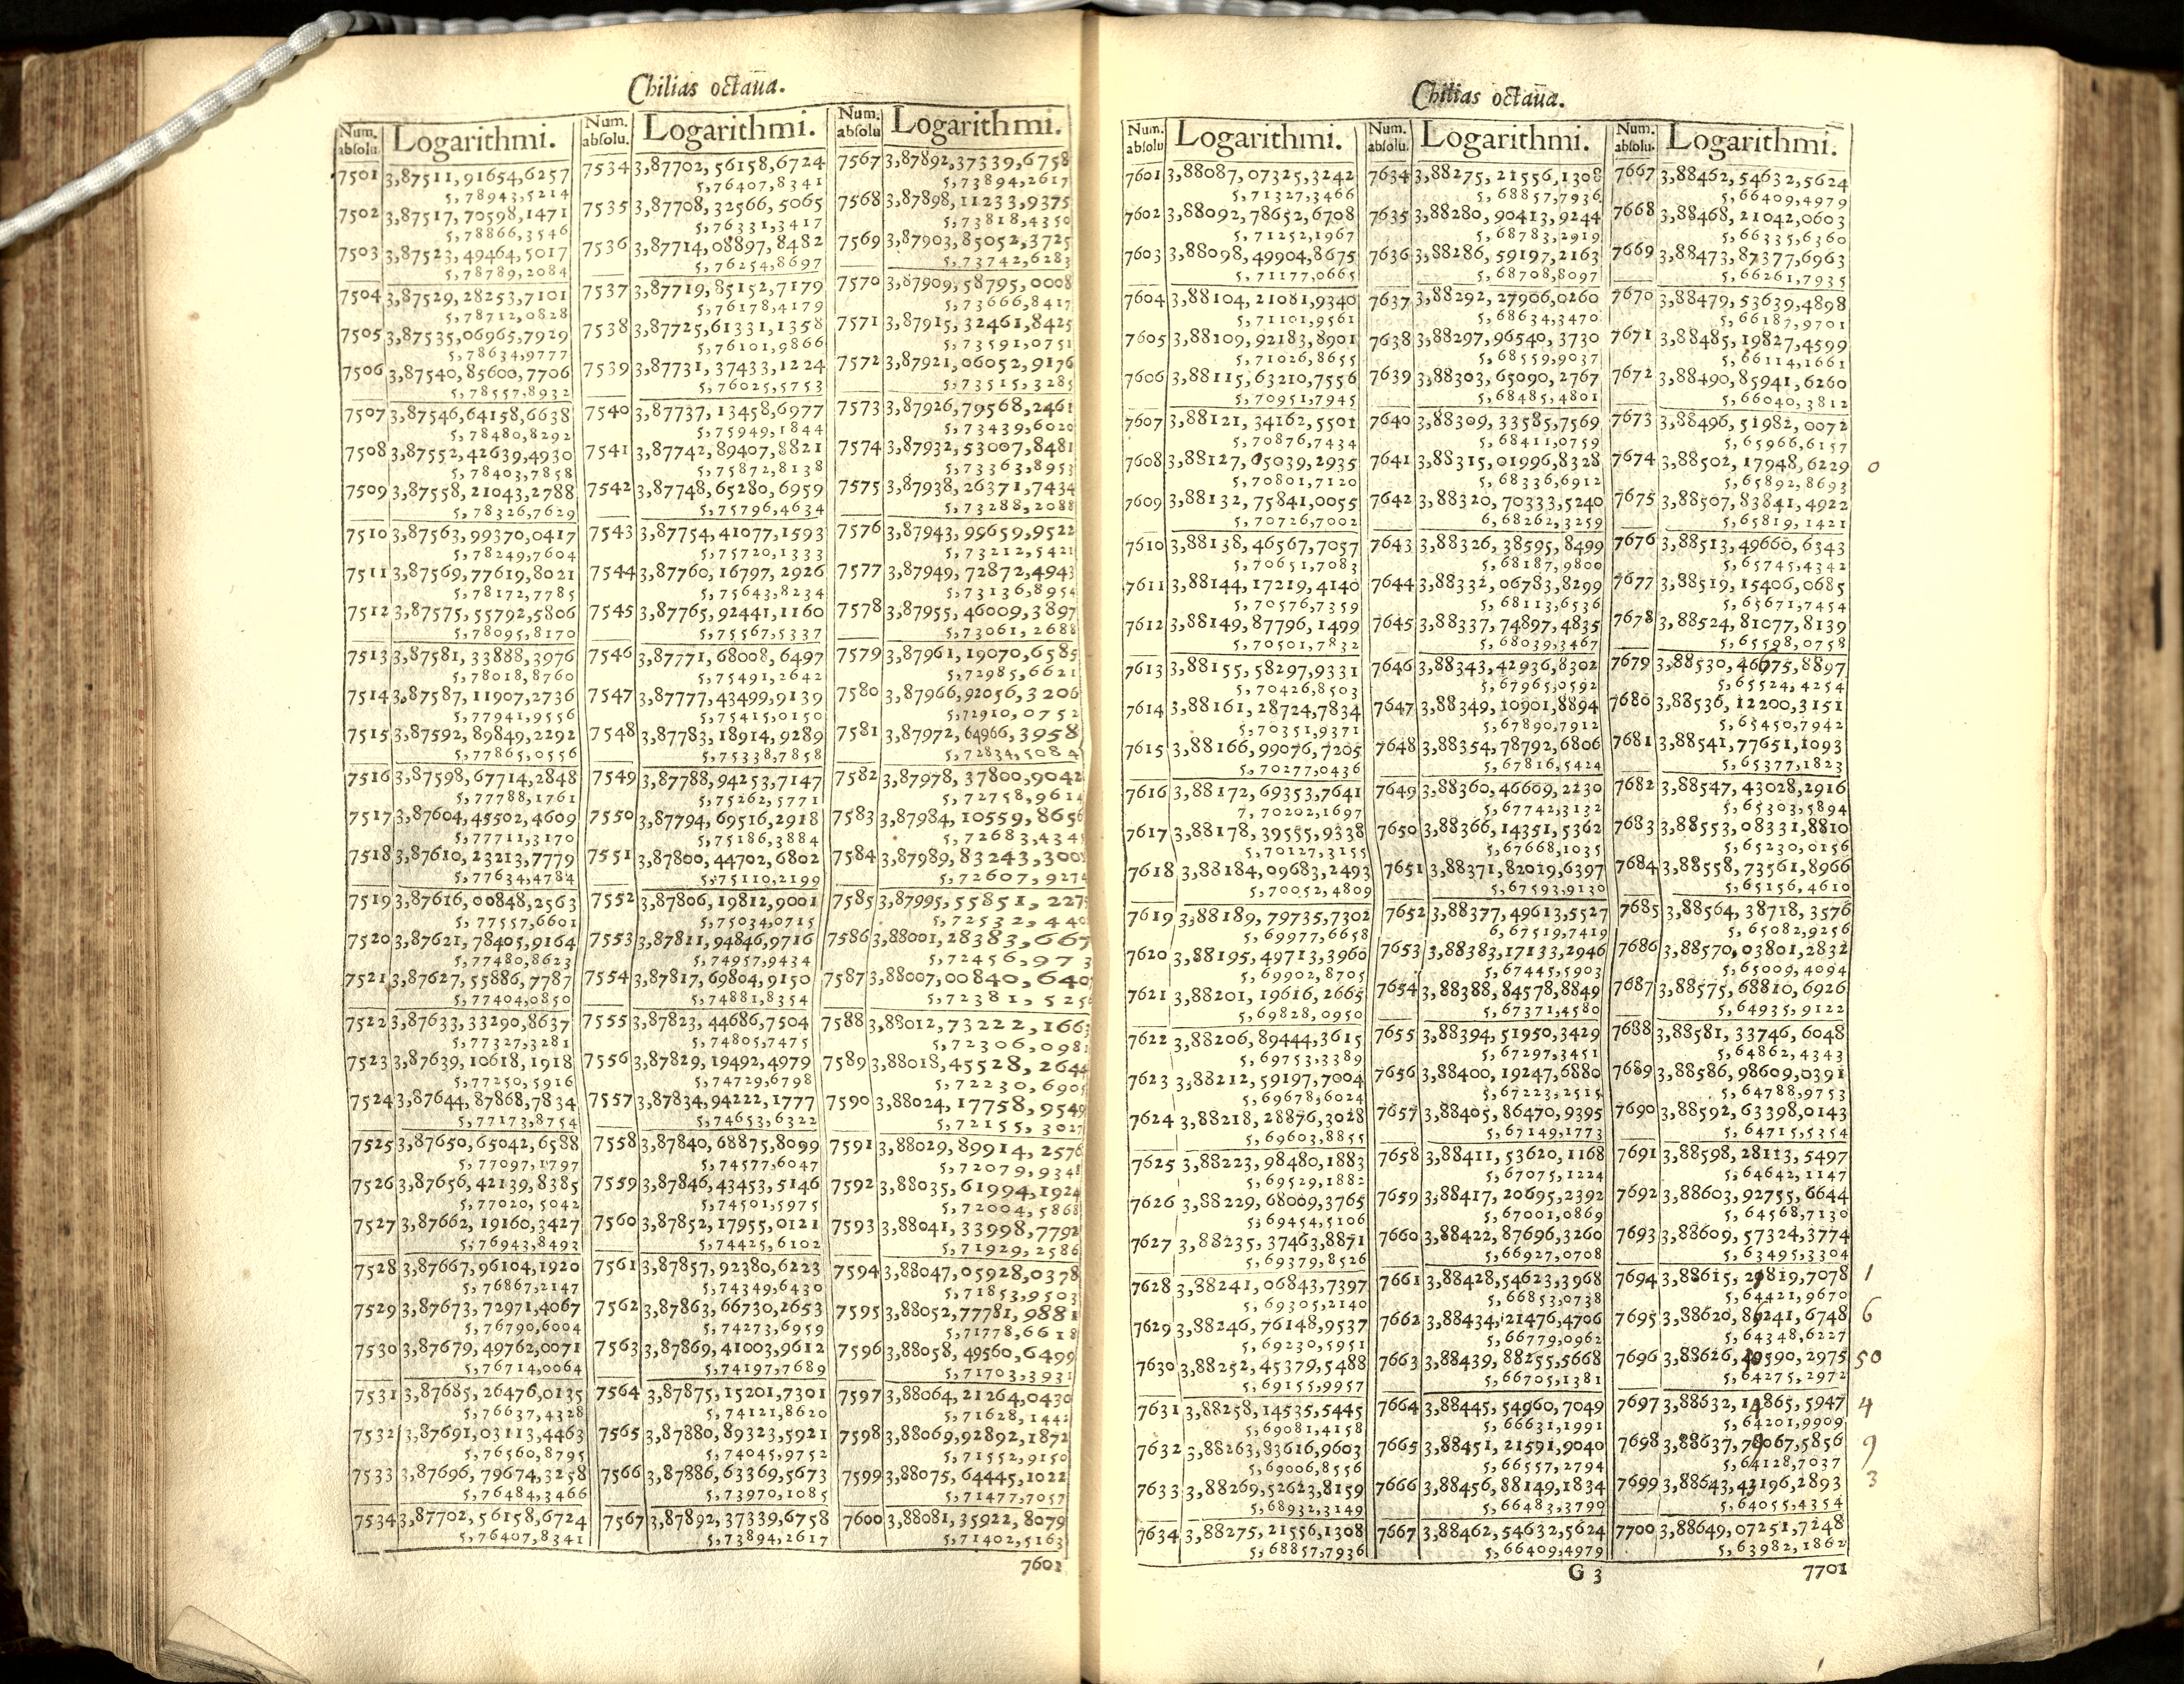 Chilias octaua.
Num. absolu. Logarithmi.
7501 3,87511,91654,6257
5,78943,5214
7502 3,87517,70598,1471
5,78866,3546
7503 3,87523,49464,5017
5,78789,2084
7504 3,87529,28253,7101
5,78712,0828
7505 3,87535,06965,7929
5,78634,9777
7506 3,87540,85600,7706
5,78557,8932
7507 3,87546,64158,6638
5,78480,8292
7508 3,87552,42639,4930
5,78403,7858
7509 3,87558,21043,2788
5,78326,7629
7510 3,87563,99370,0417
5,78249,7604
7511 3,87569,77619,8021
5,78172,7785
7512 3,87575,55792,5806
5,78095,8170
7513 3,87581,33888,3976
5,78018,8760
7514 3,87587,11907,2736
5,77941,9556
7515 3,87592,89849,2292
5,77865,0556
7516 3,87598,67714,2848
5,77788,1761
7517 3,87604,45502,4609
5,77711,3170
7518 3,87610,23213,7779
5,77634,4784
7519 3,87616,00848,2563
5,77557,6601
7520 3,87621,78405,9164
5,77480,8623
7521 3,87627,55886,7787
5,77404,0850
7522 3,87633,33290,8637
5,77327,3281
7523 3,87639,10618,1918
5,77250,5916
7524 3,87644,87868,7834
5,77173,8754
7525 3,87650,65042,6588
5,77097,1797
7526 3,87656,42139,8385
5,77020,5042
7527 3,87662,19160,3427
5,76943,8493
7528 3,87667,96104,1920
5,76867,2147
7529 3,87673,72971,4067
5,76790,6004
7530 3,87679,49762,0071
5,76714,0064
7531 3,87685,26476,0135
5,76637,4328
7532 3,87691,03113,4463
5,76560,8795
7533 3,87696,79674,3258
5,76484,3466
7534 3,87702,56158,6724
5,76407,8341
Num. absolu. Logarithmi.
7534 3,87702,56158,6724
5,76407,8341
7535 3,87708,32566,5065
5,76331,3417
7536 3,87714,08897,8482
5,76254,8697
7537 3,87719,85152,7179
5,76178,4179
7538 3,87725,61331,1358
5,76101,9866
7539 3,87731,37433,1224
5,76025,5753
7540 3,87737,13458,6977
5,75949,1844
7541 3,87742,89407,8821
5,75872,8138
7542 3,87748,65280,6959
5,75796,4634
7543 3,87754,41077,1593
5,75720,1333
7544 3,87760,16797,2926
5,75643,8234
7545 3,87765,92441,1160
5,75567,5337
7546 3,87771,68008,6497
5,75491,2642
7547 3,87777,43499,9139
5,75415,0150
7548 3,87783,18914,9289
5,75338,7858
7549 3,87788,94253,7147
5,75262,5771
7550 3,87794,69516,2918
5,75186,3884
7551 3,87800,44702,6802
5,75110,2199
7552 3,87806,19812,9001
5,75034,0715
7553 3,87811,94846,9716
5,74957,9434
7554 3,87817,69804,9150
5,74881,8354
7555 3,87823,44686,7504
5,74805,7475
7556 3,87829,19492,4979
5,74729,6798
7557 3,87834,94222,1777
5,74653,6322
7558 3,87840,68875,8099
5,74577,6047
7559 3,87846,43453,5146
5,74501,5975
7560 3,87852,17955,0121
5,74425,6102
7561 3,87857,92380,6223
5,74349,6430
7562 3,87863,66730,2653
5,74273,6959
7563 3,87869,41003,9612
5,74197,7689
7564 3,87875,15201,7301
5,74121,8620
7565 3,87880,89323,5921
5,74045,9752
7566 3,87886,63369,5673
5,73970,1085
7567 3,87892,37339,6758
5,73894,2617
Num. absolu Logarithmi.
7567 3,87892,37339,6758
5,73894,2617
7568 3,87898,11233,9375
5,73818,4350
7569 3,87903,85052,3725
5,73742,6283
7570 3,87909,58795,0008
5,73666,8417
7571 3,87915,32461,8425
5,73591,0751
7572 3,87921,06052,9176
5,73515,3285
7573 3,87926,79568,2461
5,73439,6020
7574 3,87932,53007,8481
5,73363,8953
7575 3,87938,26371,7434
5,73288,2088
7576 3,87943,99659,9522
5,73212,5421
7577 3,87949,72872,4943
5,73136,8954
7578 3,87955,46009,3897
5,73061,2688
7579 3,87961,19070,6585
5,72985,6621
7580 3,87966,92056,3206
5,72910,0752
7581 3,87972,64966,3958
5,72834,5084
7582 3,87978,37800,9042
5,72758,9614
7583 3,87984,10559,8656
5,72683,434
7584 3,87989,83243,300
5,72607,927
7585 3,87995,55851,227
5,72532,440
7586 3,88001,28383,667
5,72456,973
7587 3,88007,00840,640
5,72381,525
7588 3,88012,73222,166
5,72306,098
7589 3,88018,45528,2644
5,72230,690
7590 3,88024,17758,9549
5,72155,3027
7591 3,88029,89914,2576
5,72079,934
7592 3,88035,61994,1924
5,72004,5868
7593 3,88041,33998,7792
5,71929,2586
7594 3,88047,05928,0378
5,71853,9503
7595 3,88052,77781,9881
5,71778,6618
7596 3,88058,49560,6499
5,71703,3931
7597 3,88064,21264,0430
5,71628,1442
7598 3,88069,92892,1872
5,71552,9150
7599 3,88075,64445,1022
5,71477,7057
7600 3,88081,35922,8079
5,71402,5163
7601
Chilias octaua.
Num. absolu Logarithmi.
7601 3,88087,07325,3242
5,71327,3466
7602 3,88092,78652,6708
5,71252,1967
7603 3,88098,49904,8675
5,71177,0665
7604 3,88104,21081,9340
5,71101,9561
7605 3,88109,92183,8901
5,71026,8655
7606 3,88115,63210,7556
5,70951,7945
7607 3,88121,34162,5501
5,70876,7434
7608 3,88127,05039,2935
5,70801,7120
7609 3,88132,75841,0055
5,70726,7002
7610 3,88138,46567,7057
5,70651,7083
7611 3,88144,17219,4140
5,70576,7359
7612 3,88149,87796,1499
5,70501,7832
7613 3,88155,58297,9331
5,70426,8503
7614 3,88161,28724,7834
5,70351,9371
7615 3,88166,99076,7205
5,70277,0436
7616 3,88172,69353,7641
7,70202,1697
7617 3,88178,39555,9338
5,70127,3155
7618 3,88184,09683,2493
5,70052,4809
7619 3,88189,79735,7302
5,69977,6658
7620 3,88195,49713,3960
5,69902,8705
7621 3,88201,19616,2665
5,69828,0950
7622 3,88206,89444,3615
5,69753,3389
7623 3,88212,59197,7004
5,69678,6024
7624 3,88218,28876,3028
5,69603,8855
7625 3,88223,98480,1883
5,69529,1882
7626 3,88229,68009,3765
5,69454,5106
7627 3,88235,37463,8871
5,69379,8526
7628 3,88241,06843,7397
5,69305,2140
7629 3,88246,76148,9537
5,69230,5951
7630 3,88252,45379,5488
5,69155,9957
7631 3,88258,14535,5445
5,69081,4158
7632 3,88263,83616,9603
5,69006,8556
7633 3,88269,52623,8159
5,68932,3149
7634 3,88275,21556,1308
5,68857,7936
Num. absolu. Logarithmi.
7634 3,88275,21556,1308
5,68857,7936
7635 3,88280,90413,9244
5,68783,2919
7636 3,88286,59197,2163
5,68708,8097
7637 3,88292,27906,0260
5,68634,3470
7638 3,88297,96540,3730
5,68559,9037
7639 3,88303,65090,2767
5,68485,4801
7640 3,88309,33585,7569
5,68411,0759
7641 3,88315,01996,8328
5,68336,6912
7642 3,88320,70333,5240
6,68262,3259
7643 3,88326,38595,8499
5,68187,9800
7644 3,88332,06783,8299
5,68113,6536
7645 3,88337,74897,4835
5,68039,3467
7646 3,88343,42936,8302
5,67965,0592
7647 3,88349,10901,8894
5,67890,7912
7648 3,88354,78792,6806
5,67816,5424
7649 3,88360,46609,2230
5,67742,3132
7650 3,88366,14351,5362
5,67668,1035
7651 3,88371,82019,6397
5,67593,9130
7652 3,88377,49613,5527
6,67519,7419
7653 3,88383,17133,2946
5,67445,5903
7654 3,88388,84578,8849
5,67371,4580
7655 3,88394,51950,3429
5,67297,3451
7656 3,88400,19247,6880
5,67223,2515
7657 3,88405,86470,9395
5,67149,1773
7658 3,88411,53620,1168
5,67075,1224
7659 3,88417,20695,2392
5,67001,0869
7660 3,88422,87696,3260
5,66927,0708
7661 3,88428,54623,3968
5,66853,0738
7662 3,88434,21476,4706
5,66779,0962
7663 3,88439,88255,5668
5,66705,1381
7664 3,88445,54960,7049
5,66631,1991
7665 3,88451,21591,9040
5,66557,2794
7666 3,88456,88149,1834
5,66483,3790
7667 3,88462,54632,5624
5,66409,4979
G 3
Num. absolu. Logarithmi.
7667 3,88462,54632,5624
5,66409,4979
7668 3,88468,21042,0603
5,66335,6360
7669 3,88473,87377,6963
5,66261,7935
7670 3,88479,53639,4898
5,66187,9701
7671 3,88485,19827,4599
5,66114,1661
7672 3,88490,85941,6260
5,66040,3812
7673 3,88496,51982,0072
5,65966,6157
7674 3,88502,17948,6229 0
5,65892,8693
7675 3,88507,83841,4922
5,65819,1421
7676 3,88513,49660,6343
5,65745,4342
7677 3,88519,15406,0685
5,65671,7454
7678 3,88524,81077,8139
5,65598,0758
7679 3,88530,46675,8897
5,65524,4254
7680 3,88536,12200,3151
5,65450,7942
7681 3,88541,77651,1093
5,65377,1823
7682 3,88547,43028,2916
5,65303,5894
7683 3,88553,08331,8810
5,65230,0156
7684 3,88558,73561,8966
5,65156,4610
7685 3,88564,38718,3576
5,65082,9256
7686 3,88570,03801,2832
5,65009,4094
7687 3,88575,68810,6926
5,64935,9122
7688 3,88581,33746,6048
5,64862,4343
7689 3,88586,98609,0391
5,64788,9753
7690 3,88592,63398,0143
5,64715,5354
7691 3,88598,28113,5497
5,64642,1147
7692 3,88603,92755,6644
5,64568,7130
7693 3,88609,57324,3774
5,63495,3304
7694 3,88615,21819,7078 1
5,64421,9670
7695 3,88620,86241,6748 6
5,64348,6227
7696 3,88626,50590,2975 50
5,64275,2972
7697 3,88632,14865,5947 4
5,64201,9909
7698 3,88637,79067,5856 9
5,64128,7037
7699 3,88643,43196,2893 3
5,64055,4354
7700 3,88649,07251,7248
5,63982,1862
7701